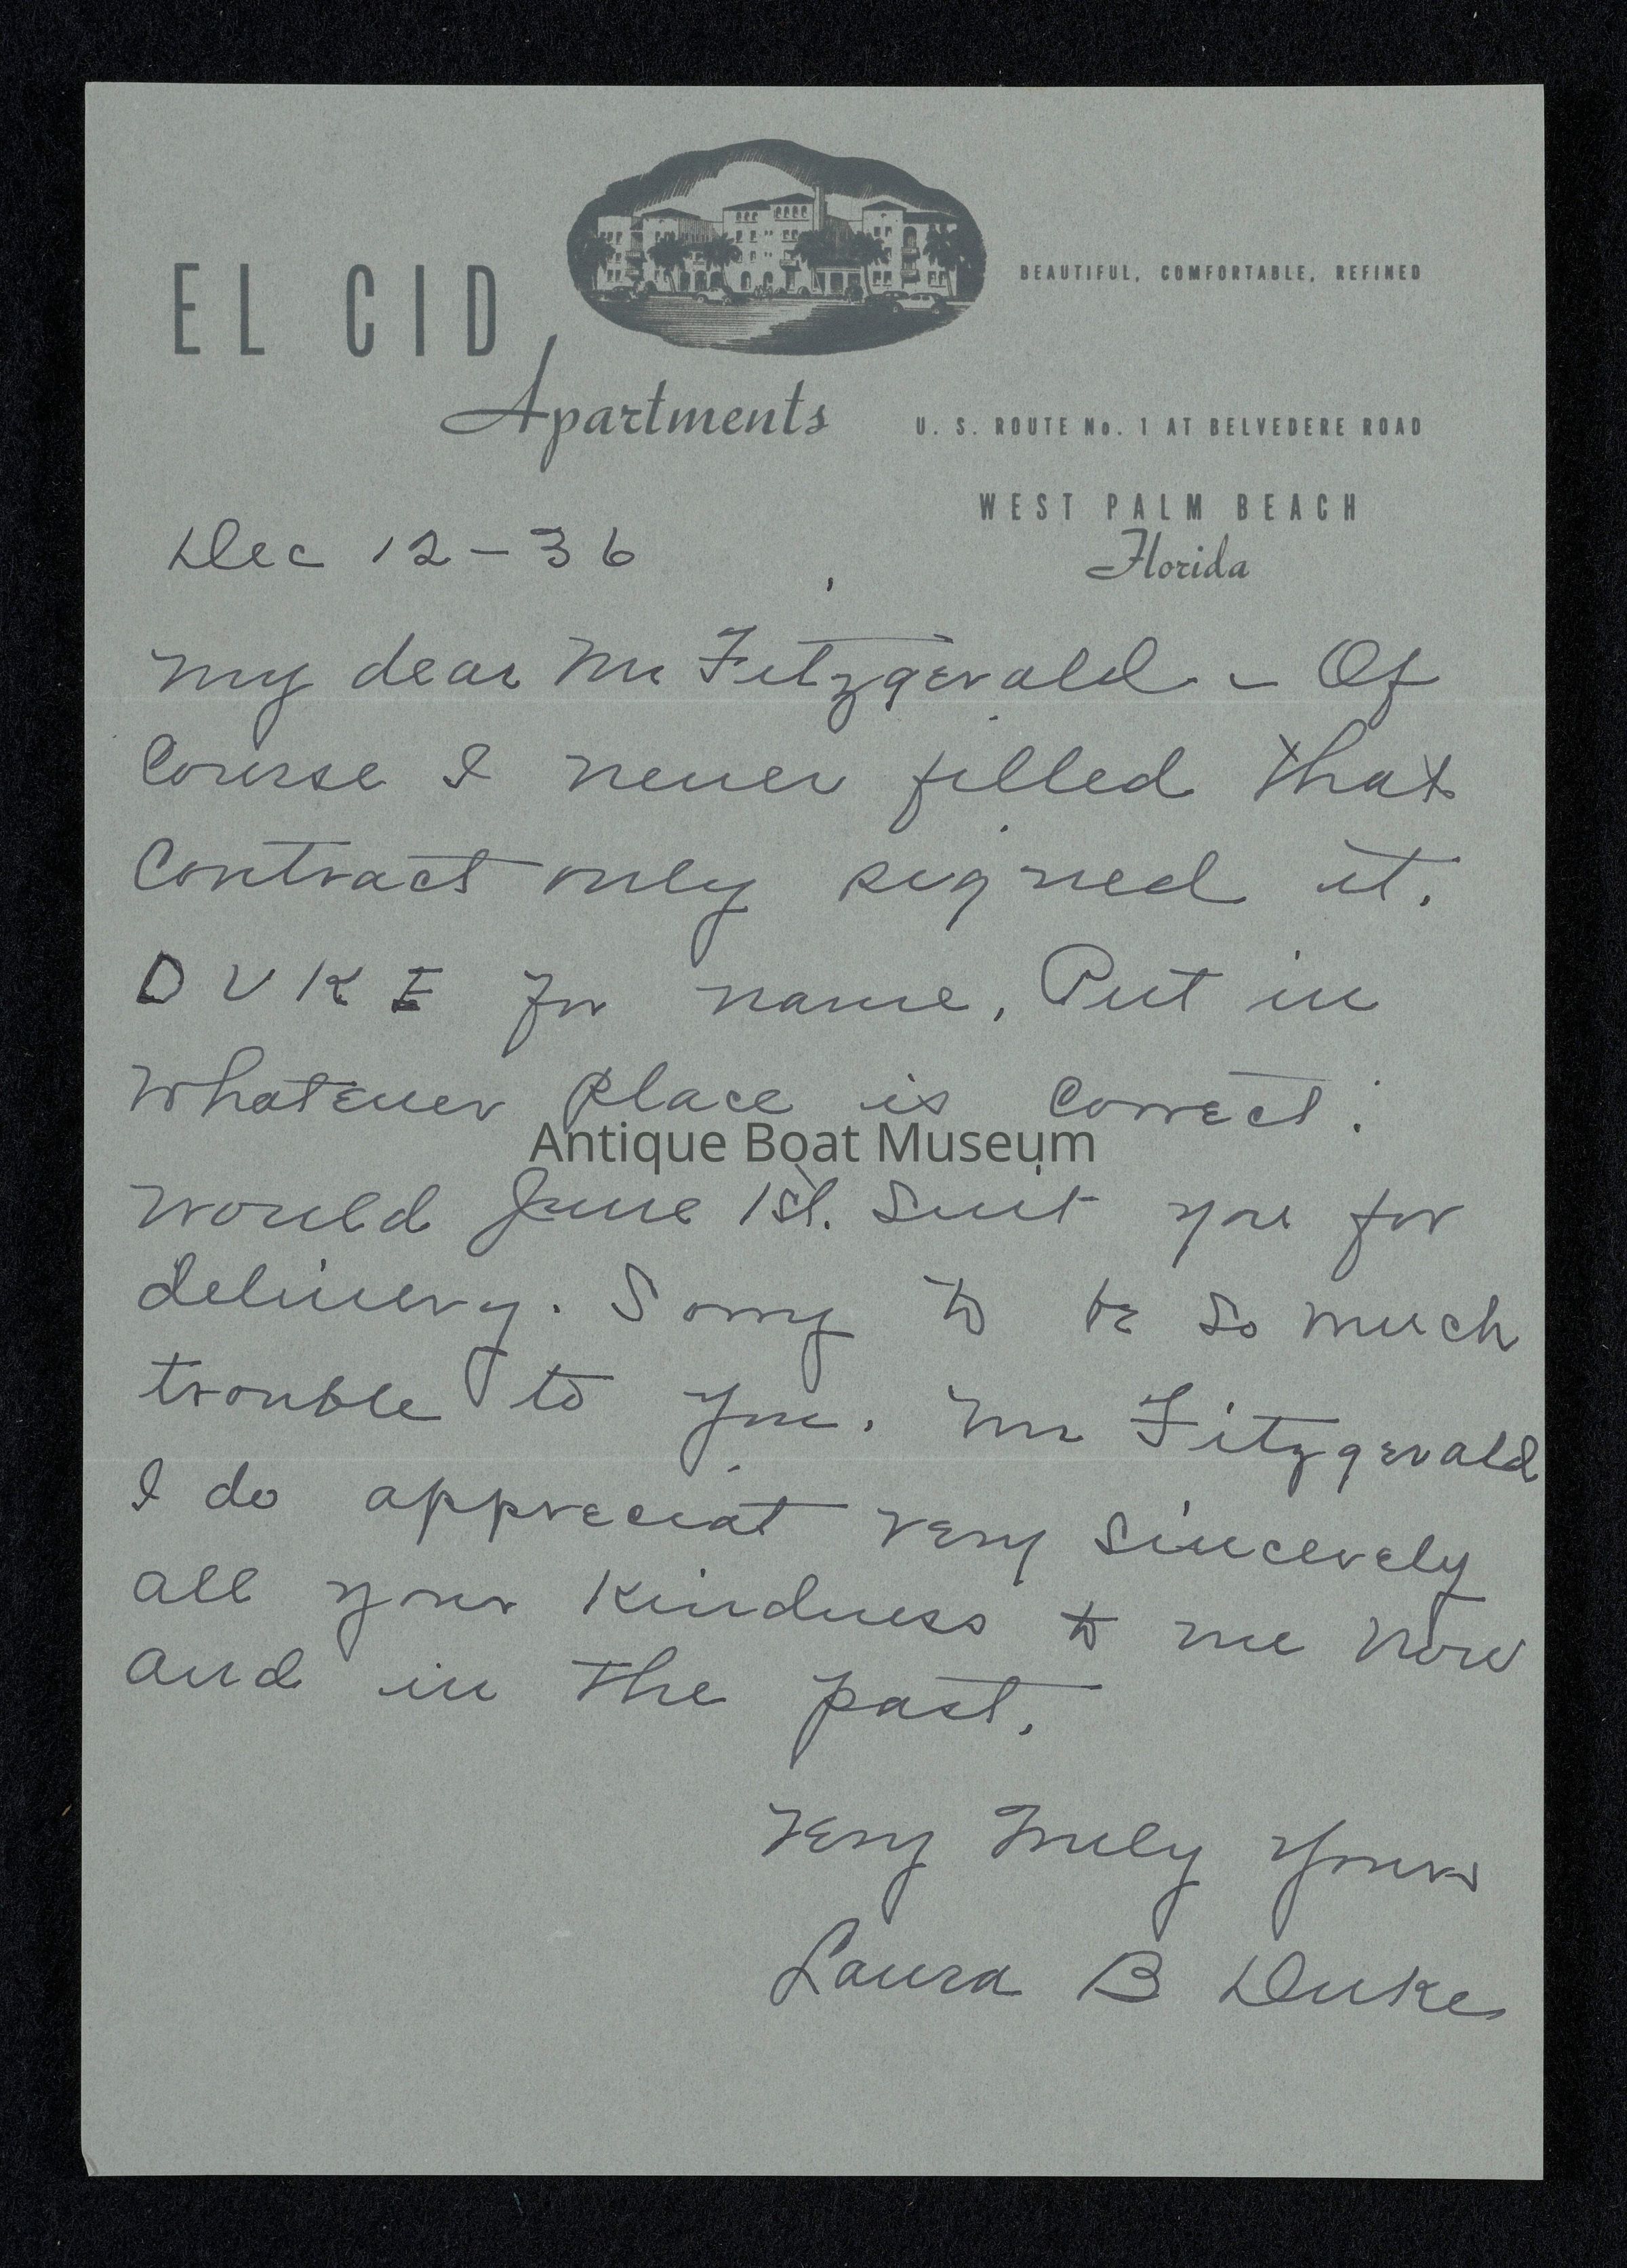 EL CID
Apartments
BEAUTIFUL, COMFORTABLE, REFINED
U. S. ROUTE No. 1 AT BELVEDERE ROAD
WEST PALM BEACH
Florida
Dec 12-36
My dear Mr Fitzgerald - Of
Course I never filled that
Contract only signed it.
DUKE for name, Put in
whatever place is correct.
Antique Boat Museum
Would June 1st. Suit you for
delivery. Sorry to be so much
trouble to you. Mr Fitzgerald
I do appreciat very sincerely
all your kindness to me now
and in the past.
Very Truly Yours
Laura B Duke